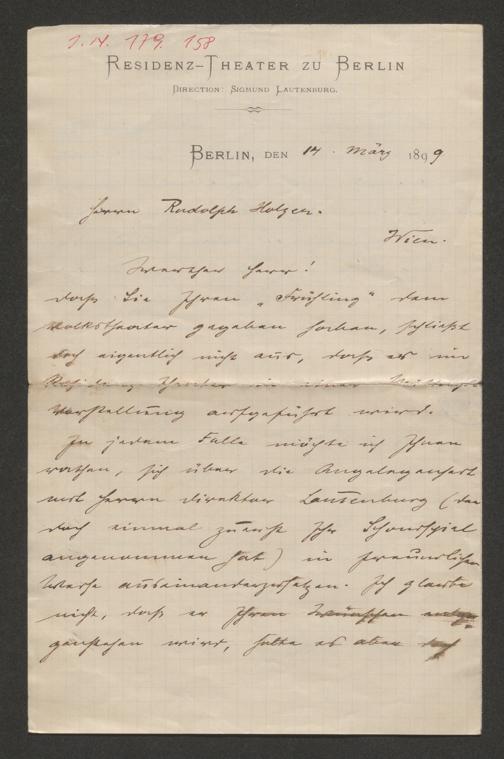 J.N. 179.158
RESIDENZ-THEATER ZU BERLIN
DIRECTION: SIGMUND LAUTENBURG.
BERLIN, DEN 14. März 1899
Herrn Rudolph Holzer.
Wien.
Werther Herr!
daß Sie Ihren „Frühling" dem
Volkstheater gegeben haben, schließt
doch eigentlich nicht aus, daß es im
Residenz-Theater in einer Mittags-
vorstellung aufgeführt wird.
In jedem Falle möchte ich Ihnen
rathen, sich über die Angelegenheit
mit Herrn Direktor Lautenburg (der
doch einmal zuerst Ihr Schauspiel
angenommen hat) in freundlicher
Weise auseinanderzusetzen. Ich glaube
nicht, daß er Ihren Wünschen entge-
genstehen wird, halte es aber